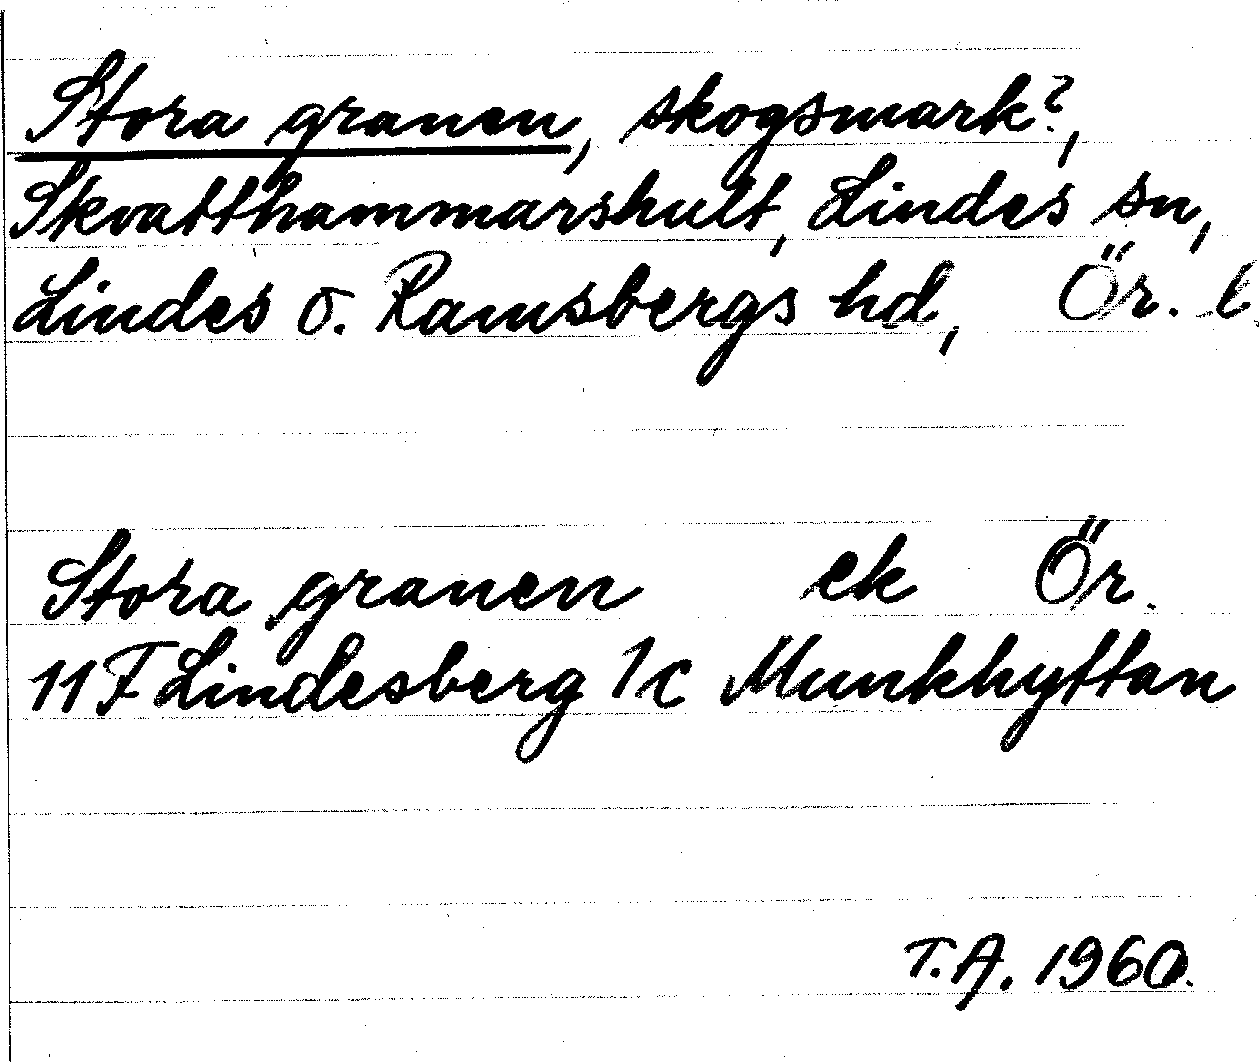 Stora granen, skogsmark?,
Skvatthammarshult, Lindes sn,
Lindes o. Ramsbergs hd, Ör. l.
Stora granen ek Ör.
11F Lindesberg 1c Munkhyttan
T.A. 1960.